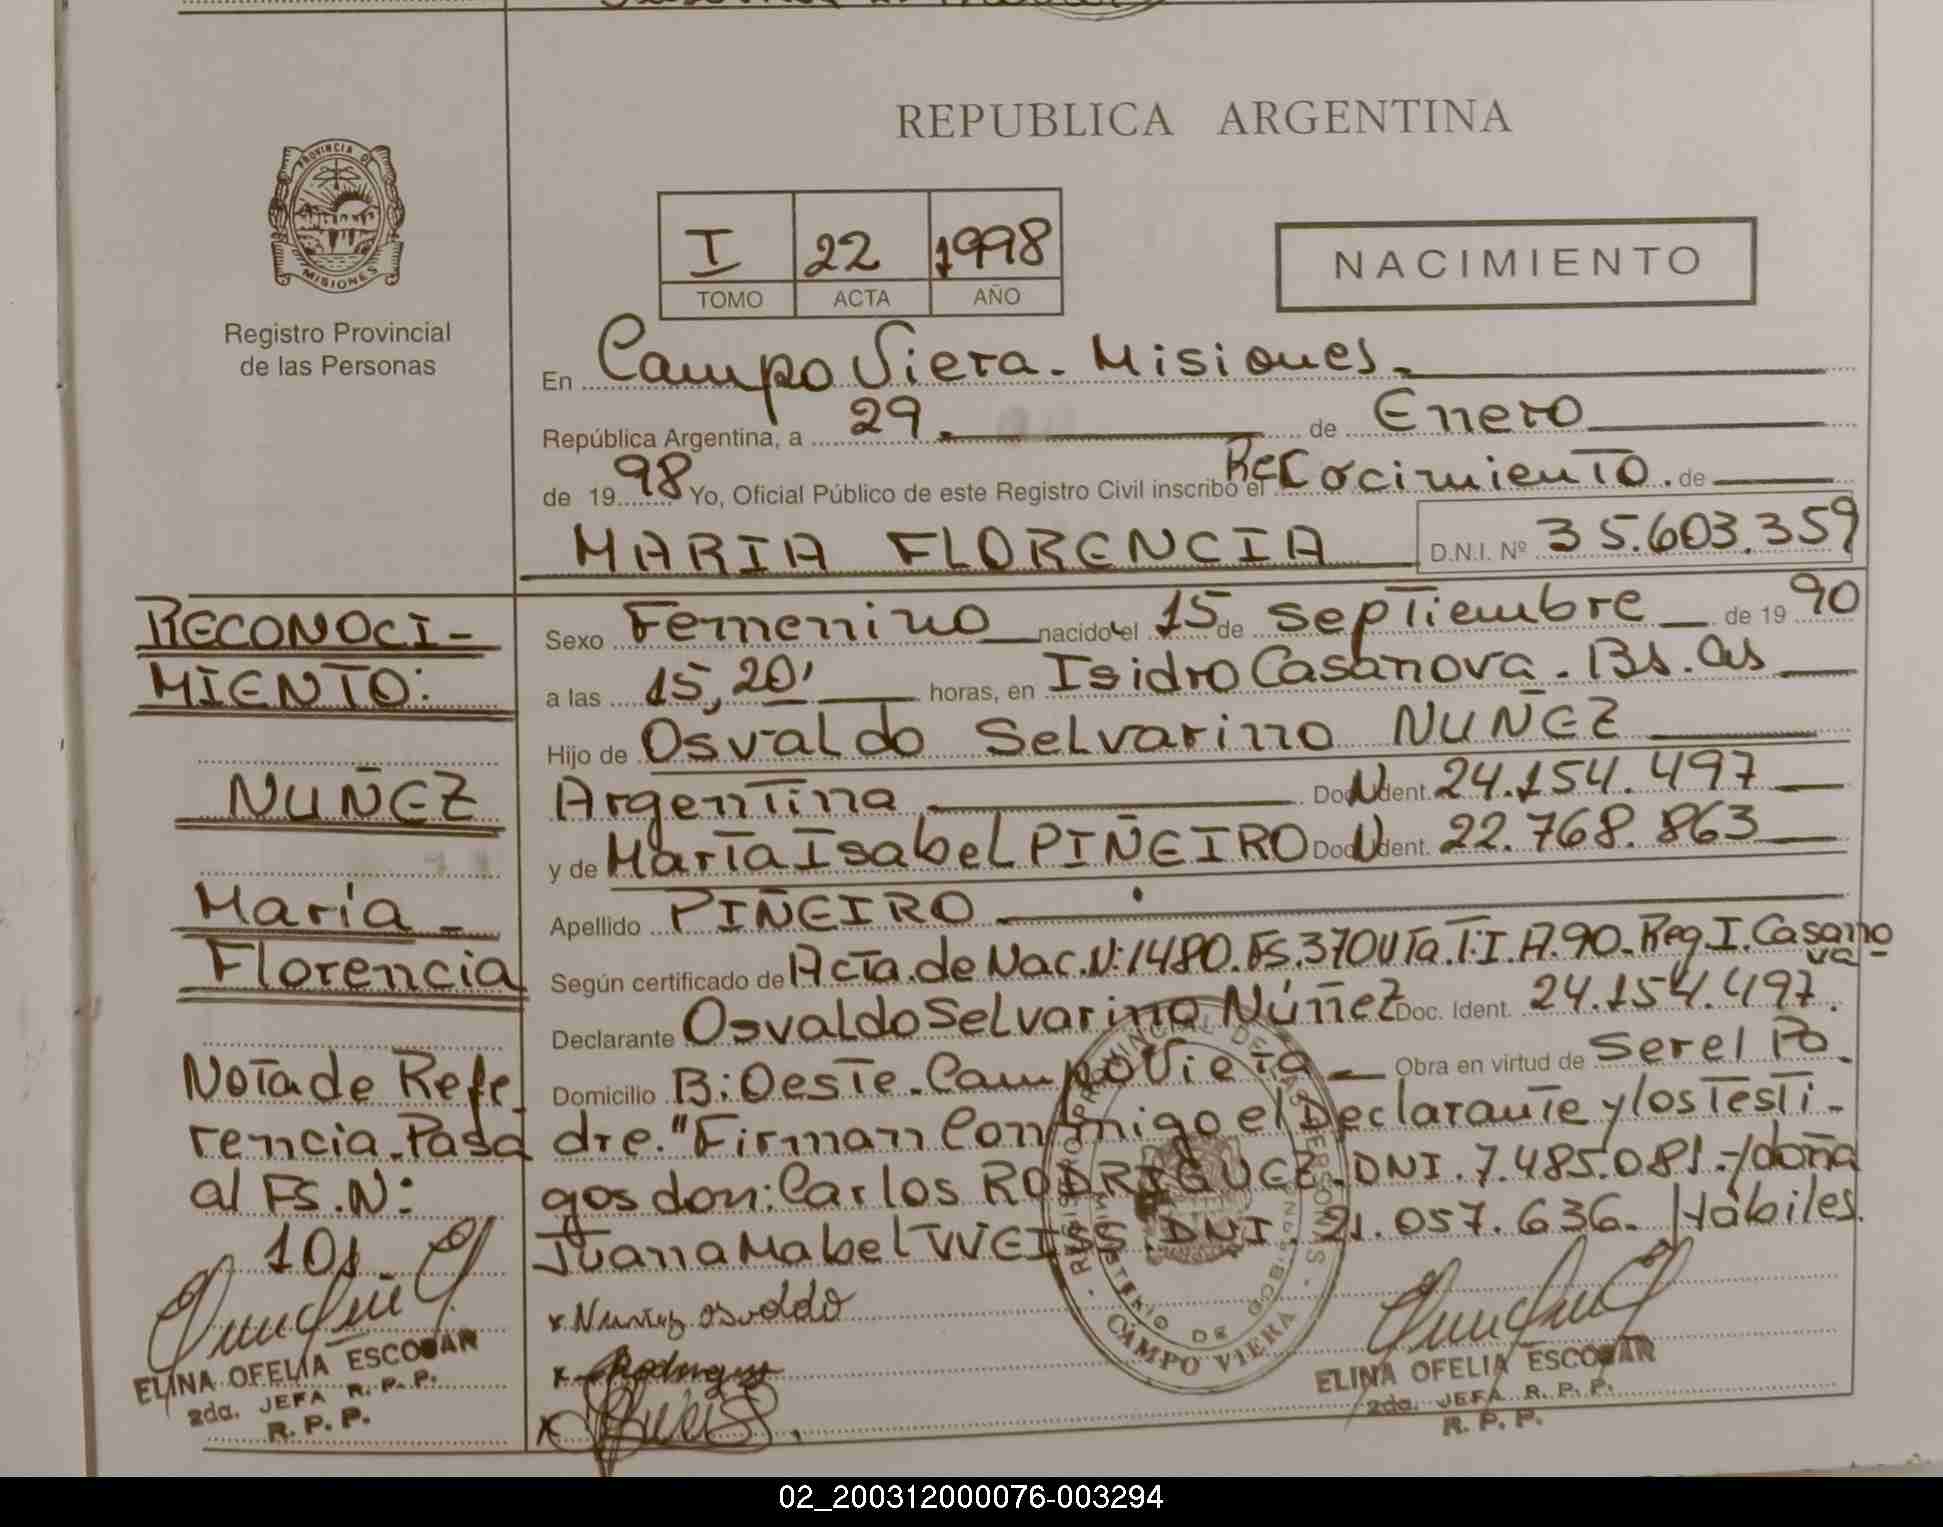 REPUBLICA ARGENTINA
PROVINCIA DE
MISIONES
Registro Provincial
de las Personas
I 22 1998
TOMO ACTA AÑO
NACIMIENTO
En Campo Viera. Misiones.
República Argentina, a 29. de Enero
de 19 98 Yo, Oficial Público de este Registro Civil inscribo el Recocimiento. de
MARIA FLORENCIA D.N.I. Nº 35.603.359
RECONOCI-
MIENTO:
NUÑEZ
María
Florencia
Nota de Refe-
rencia. Pasa
al Fs. N:
101
ELINA OFELIA ESCOBAR
2da. JEFA R. P. P.
R. P. P.
Sexo Femenino nacido el 15 de septiembre de 19 90
a las 15,20' horas, en Isidro Casanova. Bs. As
Hijo de Osvaldo Selvarino NUÑEZ
Argentina Doc. Ident. 24.154.497
y de María Isabel PIÑEIRO Doc. Ident. 22.768.863
Apellido PIÑEIRO
Según certificado de Acta. de Nac. N: 1480. Fs. 370 Vta. T: I. A. 90. Reg I. Casano
va-
Declarante Osvaldo Selvarino Núñez Doc. Ident. 24.154.497.
Domicilio B: Oeste. Campo Viera Obra en virtud de Ser el Pa.
dre. "Firman Conmigo el Declarante y los Testi-
gos don: Carlos RODRIGUEZ. DNI. 7.485.081.-/doña
Juana Mabel WEISS. DNI. 21.057.636. Hábiles.
x Nuñez osvaldo
x Rodriguez
x
REGISTRO PROVINCIAL DE LAS PERSONAS
MINISTERIO DE GOBIERNO
CAMPO VIERA
ELINA OFELIA ESCOBAR
2da. JEFA R. P. P.
R. P. P.
02_200312000076-003294